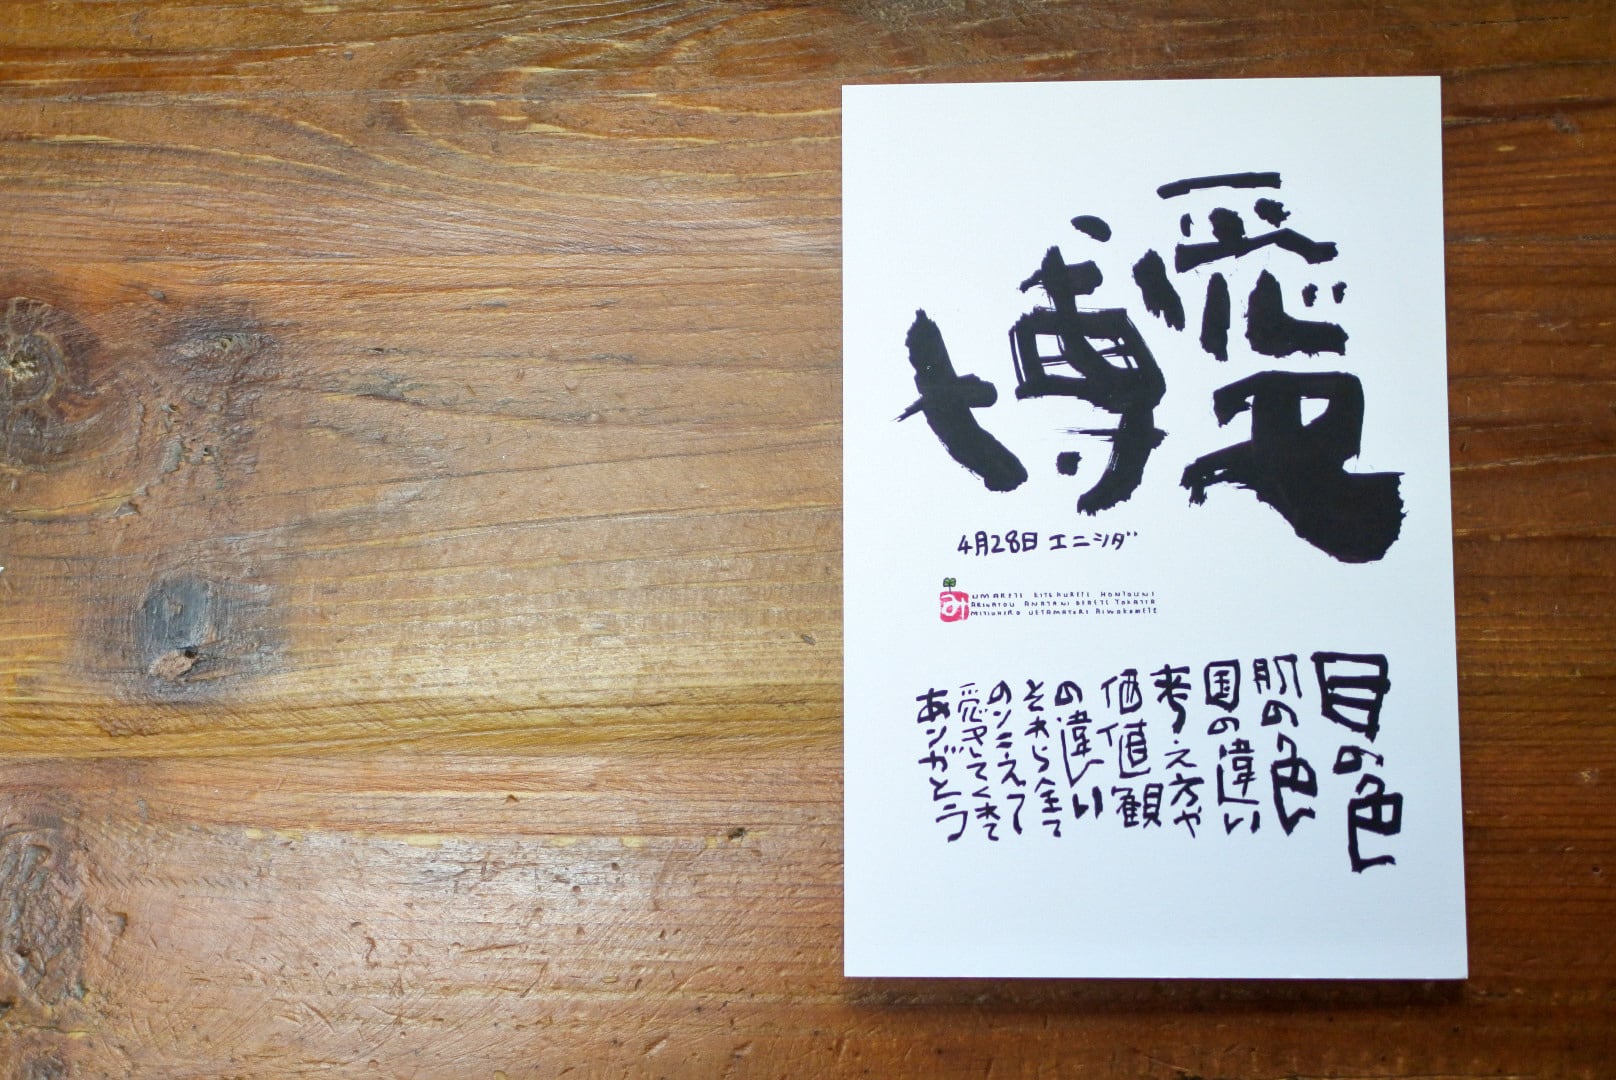 博愛
4月28日 エニシダ
み
UMARETE KITEKURETE HONTOUNI
ARIGATOU ANATANI DEAETE YOKATTA
MITIUHIRO UETAMATURI AIWOKOMETE
目の色
肌の色
国の違い
考え方や
価値観
の違い
それら全て
のりこえて
愛してくれて
ありがとう